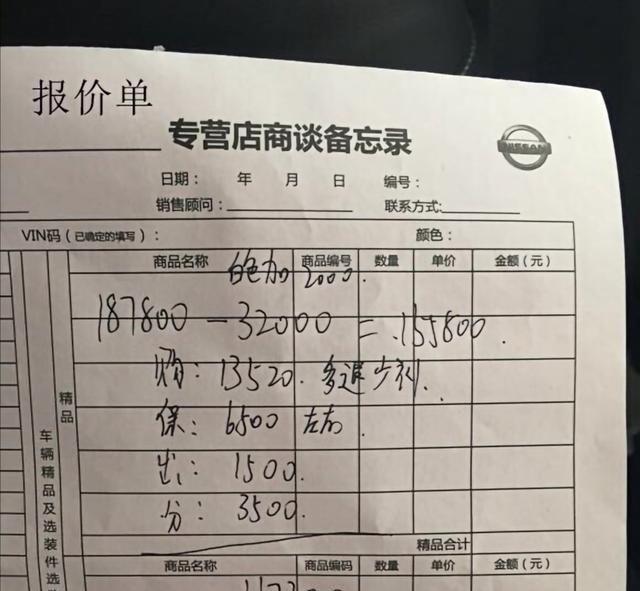 报价单
专营店商谈备忘录
NISSAN
日期： 年 月 日 编号：
销售顾问： 联系方式：
VIN码（已确定的填写）： 颜色：
商品名称 商品编号 数量 单价 金额（元）
白色加 2000.
187800 - 32000 = 155800.
购：13520. 多退少补.
保：6500 左右.
出：1500.
分：3500.
精品
车辆精品及选装件选
精品合计
商品名称 商品编码 数量 单价 金额（元）